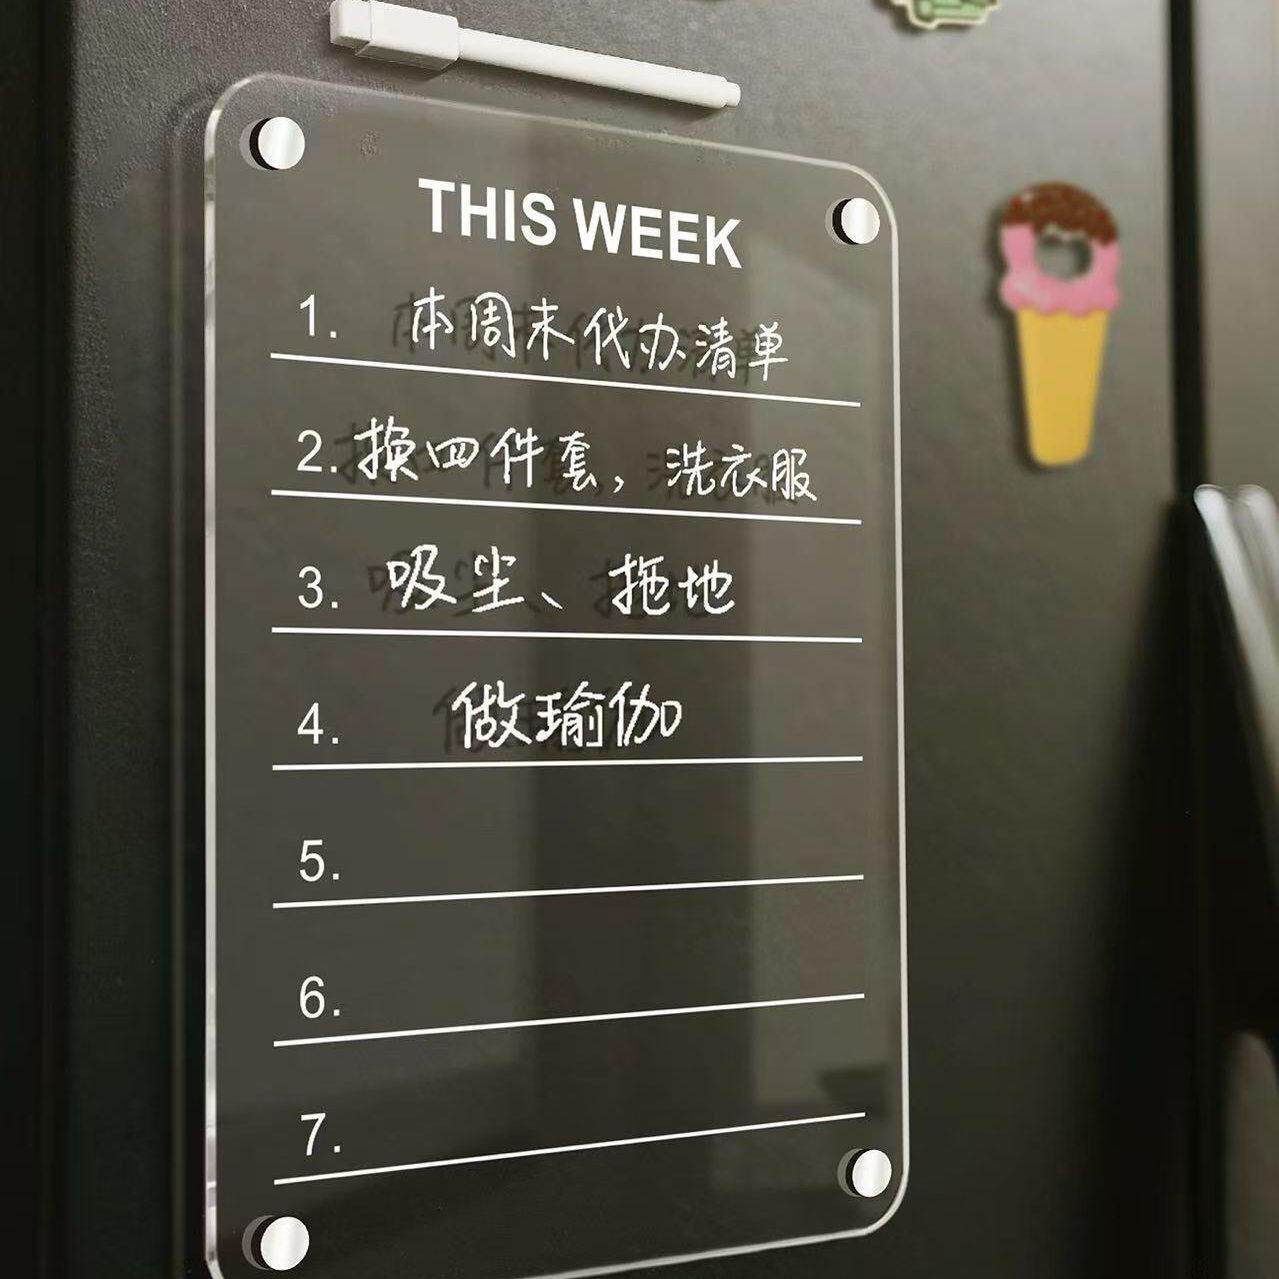 THIS WEEK
1. 本周末代办清单
2. 换四件套，洗衣服
3. 吸尘、拖地
4. 做瑜伽
5.
6.
7.